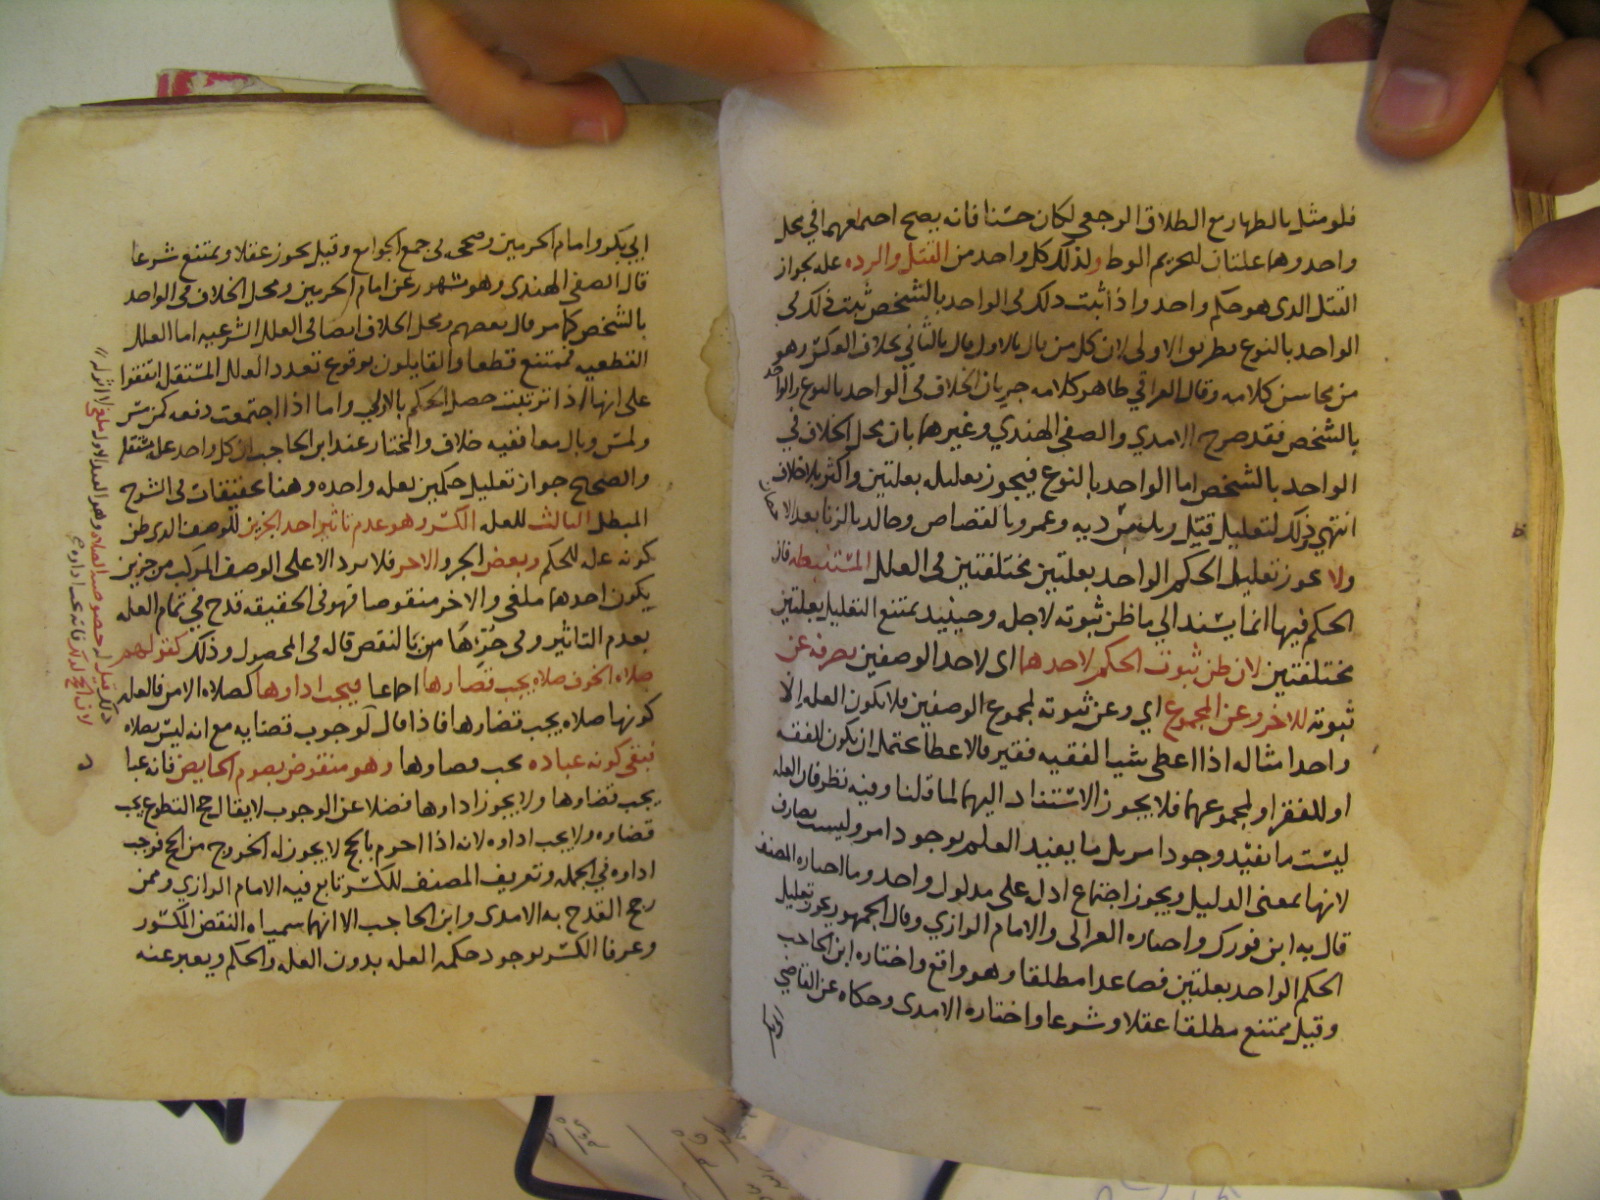 فلو مثل بالظهار مع الطلاق الرجعي لكان حسنا فانه يصح اجتماعهما في محل
واحد وهما علتان لتحريم الوطء ولذلك كل واحد من القتل والرده عله بجواز
القتل الذي هو حكم واحد واذا ثبت ذلك في الواحد بالشخص ثبت ذلك في
الواحد بالنوع بطريق الاولى لان كل من قال بالاول قال بالثاني بخلاف العكس وهو
من محاسن كلامه وقال العراقي ظاهر كلامه جريان الخلاف في الواحد بالنوع والواحد
بالشخص فقد صرح الامدي والصفي الهندي وغيرهما بان محل الخلاف في
الواحد بالشخص اما الواحد بالنوع فيجوز تعليله بعلتين واكثر بلا خلاف
انتهى وذلك لتعليل قتل زيد بردته وعمرو بالقصاص وخالد بالزنا بعد الاحصان
ولا يجوز تعليل الحكم الواحد بعلتين مختلفتين في العلل المستنبطه فان
الحكم فيها انما يسند الي ما ظن ثبوته لاجله وحينيذ يمتنع التعليل بعلتين
مختلفتين لان ظن ثبوت الحكم لاحدهما اي لاحد الوصفين يصرفه عن
ثبوته للاخر وعن المجموع اي وعن ثبوته لمجموع الوصفين فلا تكون العله الا
واحدا مثاله اذا اعطى شيا لفقيه فقير فالاعطا يحتمل ان يكون للفقه
او للفقر او لمجموعهما فلا يجوز الاستناد اليهما لما قلنا وفيه نظر فان العله
ليست ما يفيد وجود امر بل ما يفيد العلم بوجود امر وليست بصارف
لانها بمعنى الدليل ويجوز اجتماع ادله على مدلول واحد وما اختاره المصنف
قال به ابن فورك واختاره الغزالي والامام الرازي وقال الجمهور يجوز تعليل
الحكم الواحد بعلتين فصاعدا مطلقا وهو واقع واختاره ابن الحاجب
وقيل ممتنع مطلقا عقلا وشرعا واختاره الامدي وحكاه عن القاضي
ابي بكر وامام الحرمين وصححه في جمع الجوامع وقيل يجوز عقلا ويمتنع شرعا
قال الصفي الهندي وهو مشهور عن امام الحرمين ومحل الخلاف في الواحد
بالشخص كما مر قال بعضهم ومحل الخلاف ايضا في العلل الشرعيه اما العلل
القطعيه فممتنع قطعا والقايلون بوقوع تعدد العلل المستقله اتفقوا
على انها اذا ترتبت حصل الحكم بالاولى واما اذا اجتمعت دفعه كمن مس
ولمس وبال معا ففيه خلاف والمختار عند ابن الحاجب ان كل واحد عله مستقله
والصحيح جواز تعليل حكمين بعله واحده وهنا تحقيقات في الشرح
المبطل الثالث للعله الكسر وهو عدم تاثير احد الجزين للوصف الذي ظن
كونه عله للحكم وبعض الجزو الاخر فلا يرد الا على الوصف المركب من جزين
يكون احدهما ملغى والاخر منقوصا فهو في الحقيقه قدح في تمام العله
بعدم التاثير وفي جزءها من بالنقص قاله في المحصول وذلك كقولهم
صلاه الخوف صلاه يجب قضاوها اجماعا فيجب اداوها كصلاه الامن فالعله
كونها صلاه يجب قضاوها فاذا قال لوجوب قضايه مع انه ليس بصلاه
نبقى كونه عباده يجب قضاوها وهو منقوض بصوم الحايض فانه عبا
يجب قضاوها ولا يجوز اداوها فضلا عن الوجوب لا يقال حج التطوع يجب
قضاوه ولا يجب اداوه لانه اذا احرم بالحج لا يجوز له الخروج من الحج فوجب
اداوه في الجمله وتعريف المصنف للكسر تابع فيه الامام الرازي وممن
رجح القدح به الامدي وابن الحاجب الا انهما سمياه النقض المكسور
وعرفا الكسر بوجود حكمه العله بدون العله والحكم ويعبر عنه